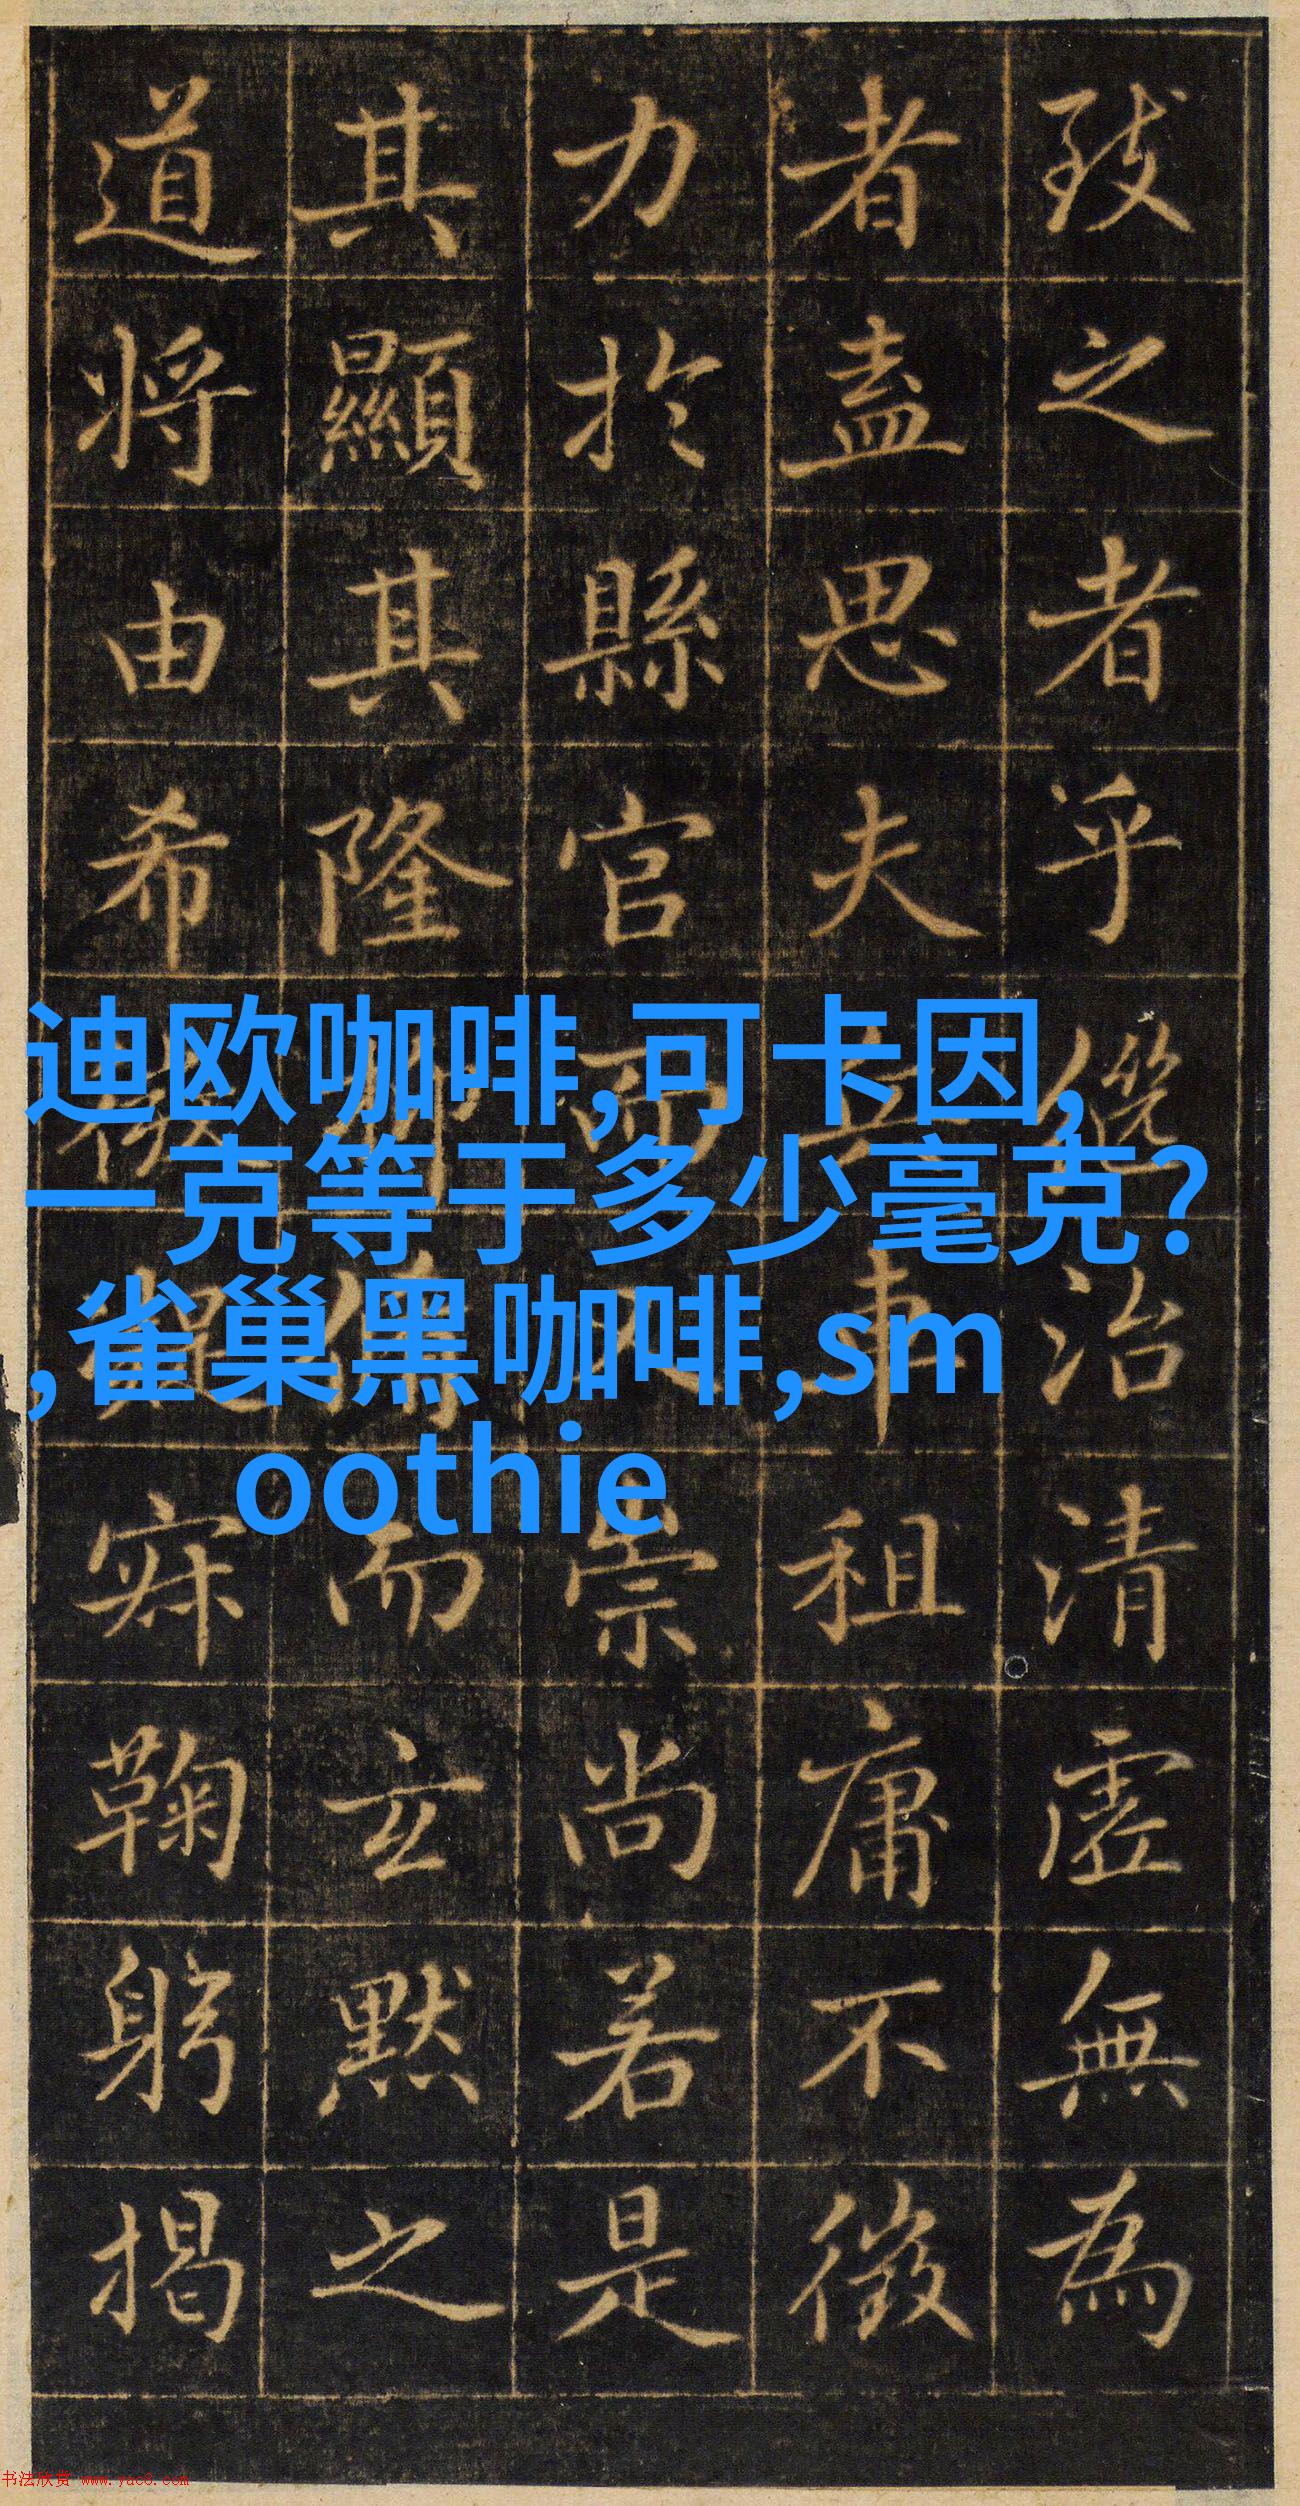 致之者乎治清虛無為
者盡思夫兵車租庸不徵
力於縣官而又崇尚若是
其顯其隆而玄默之
道將由希寐鞠躬揭
迪欧咖啡,可卡因,
一克等于多少毫克?
,雀巢黑咖啡,sm
oothie
书法欣赏 www.yac8.com